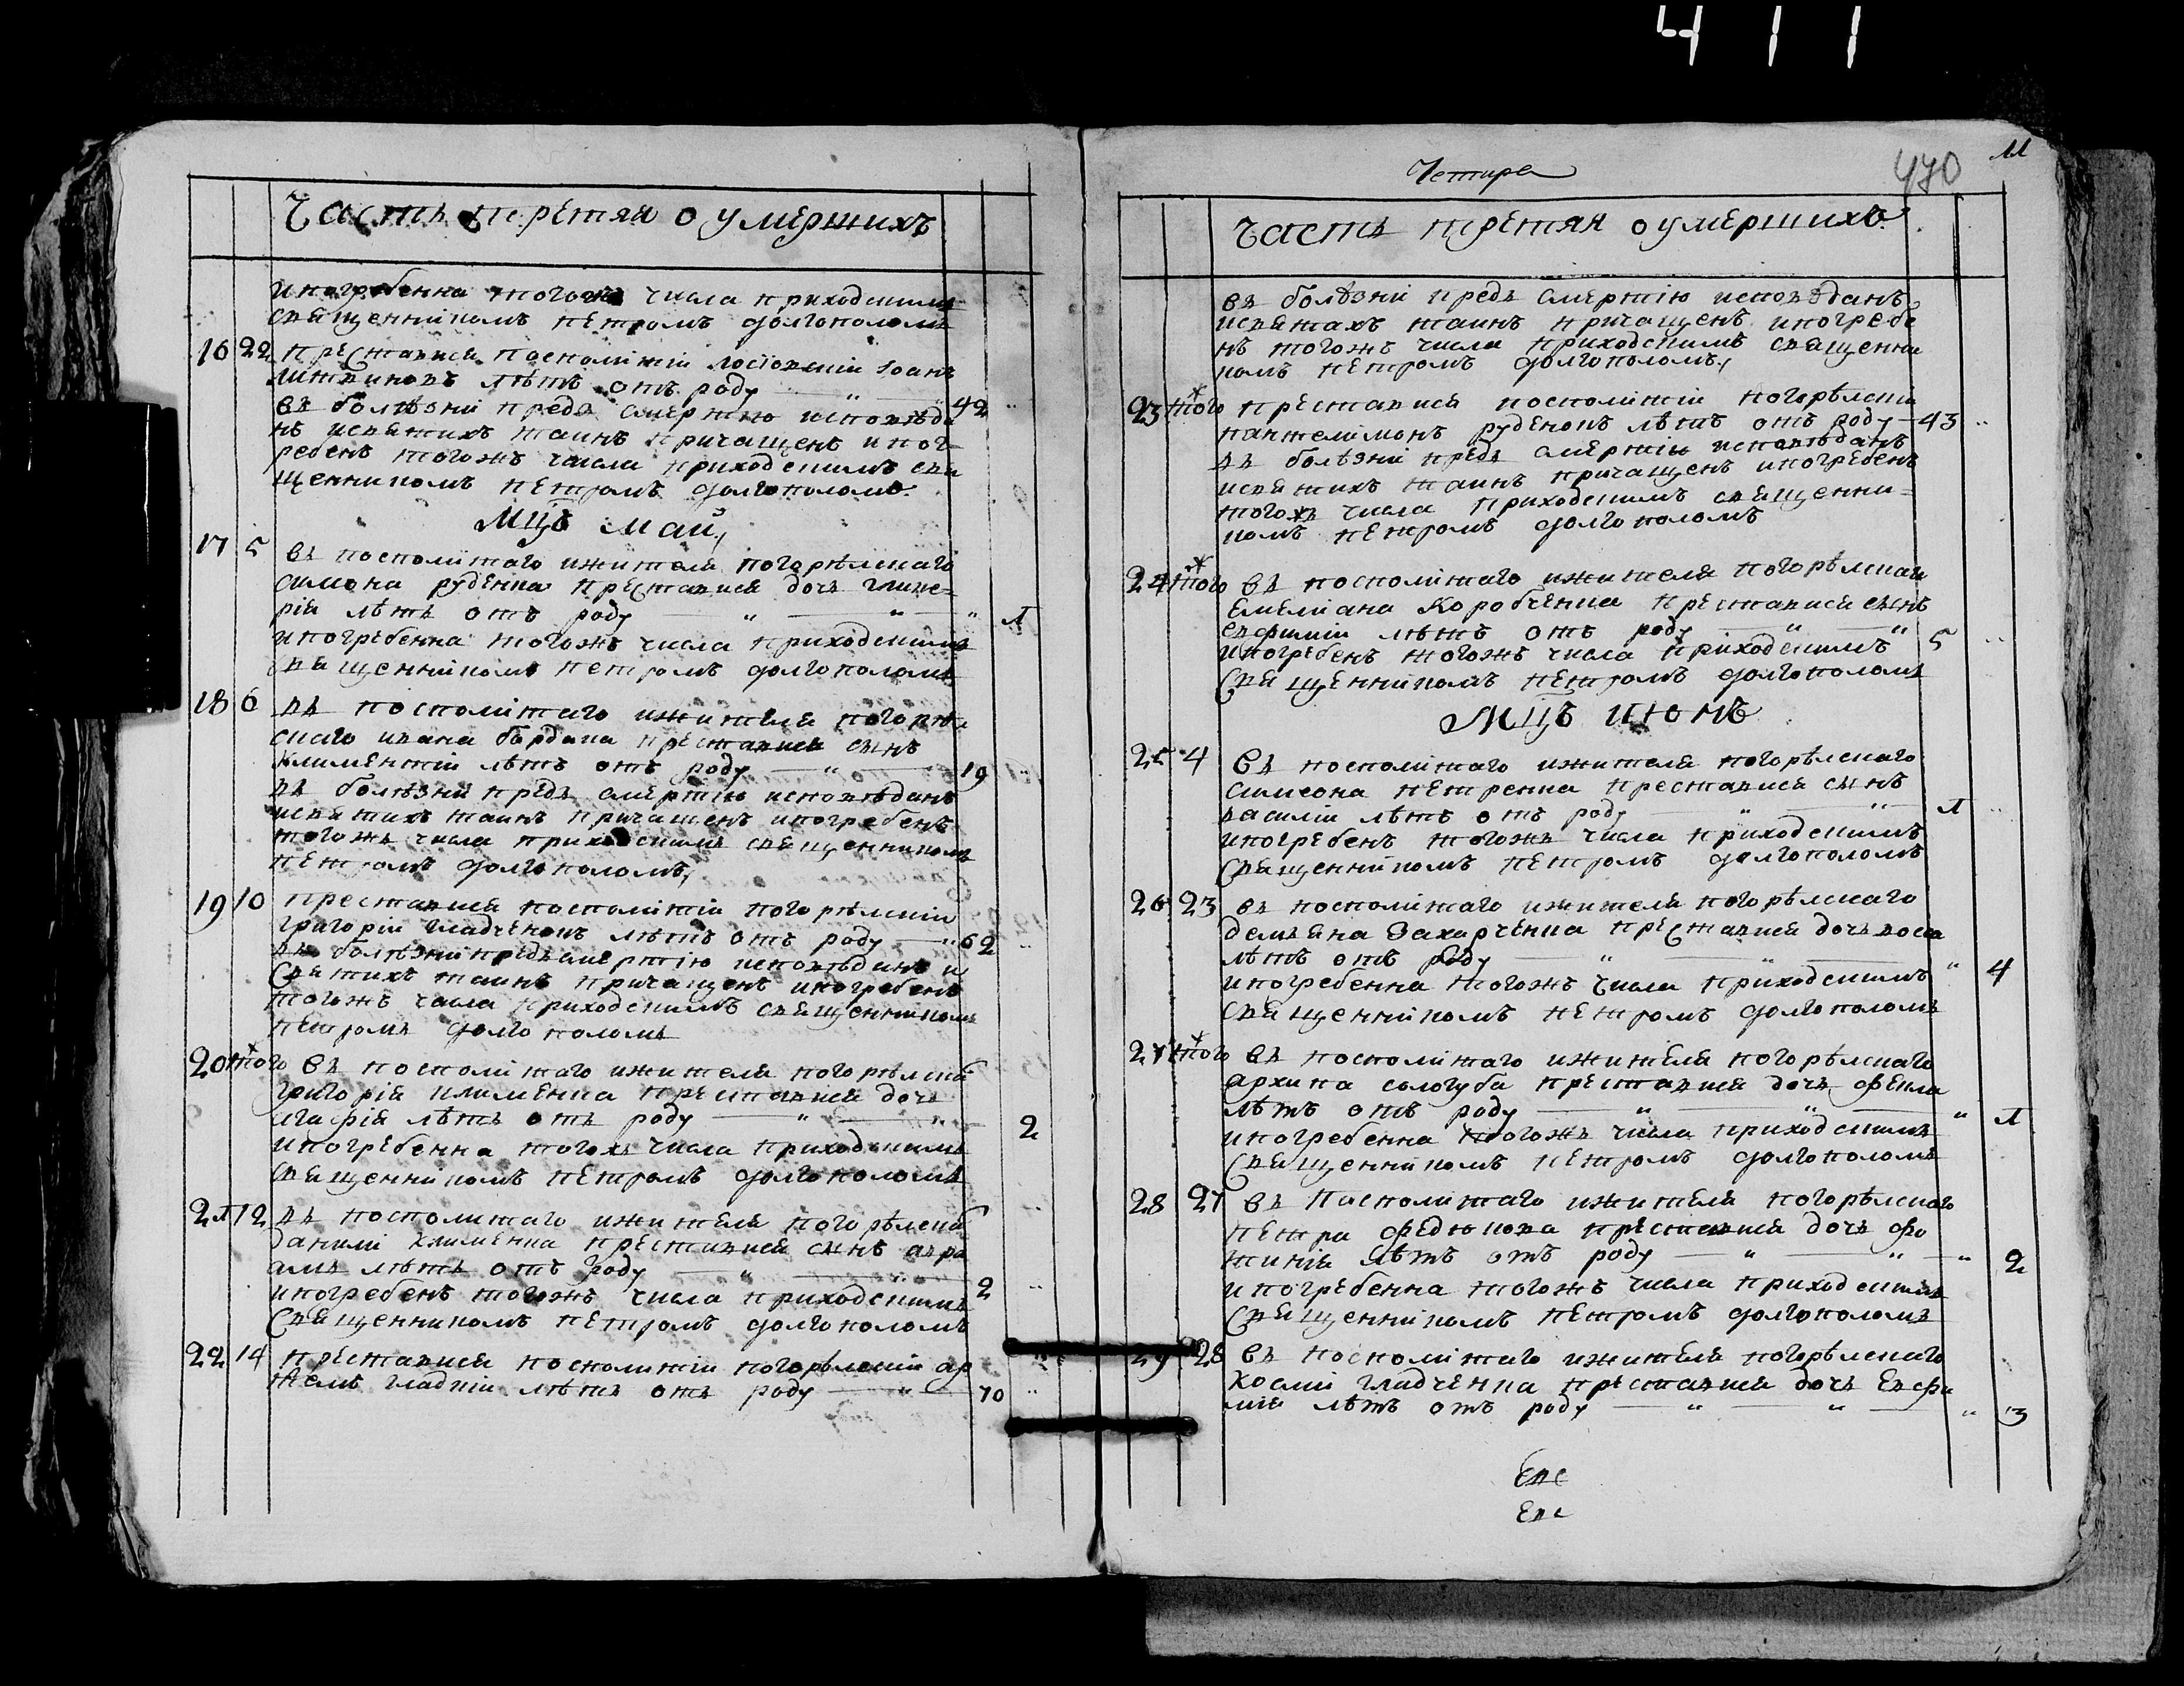 411
Часть третяя о умершихъ
и погребенна тогожъ числа приходскимъ
священникомъ петромъ долгополомъ
16 22 преставися посполитій Іоанъ
литвиновъ лѣтъ отъ роду 42
въ болѣзни предъ смертію исповѣда
нъ и святихъ таинъ причащенъ и пог-
ребенъ тогожъ числа приходскимъ свя
щенникомъ петромъ долгополомъ
Мцъ май
17 5 въ посполитаго жителя погорѣлскаго
симона руденка преставися дочь глике-
рія лѣтъ отъ роду 1
и погребенна тогожъ числа приходскимъ
священникомъ петромъ долгополомъ
18 6 въ посполитаго жителя погорѣл
скаго ивана бардака преставися сынъ
климентій лѣтъ отъ роду 19
въ болѣзни предъ смертію исповѣданъ
и святихъ таинъ причащенъ и погребенъ
тогожъ числа приходскимъ священникомъ
петромъ долгополомъ
19 10 преставися посполитій погорѣлскій
григорій гладченокъ лѣтъ отъ роду 62
въ болѣзни предъ смертію исповѣданъ и
святихъ таинъ причащенъ и погребенъ
тогожъ числа приходскимъ священникомъ
петромъ долгополомъ
20 того ж въ посполитаго жителя погорѣлска
григорія клименка преставися дочь
агафія лѣтъ отъ роду 2
и погребенна тогожъ числа приходскимъ
священникомъ петромъ долгополомъ
21 12 въ посполитаго жителя погорѣлска
данилі клименка преставися сынъ авра
амъ лѣтъ отъ роду 2
и погребенъ тогожъ числа приходскимъ
священникомъ петромъ долгополомъ
22 14 преставися посполитій погорѣлскій ар
темъ гладкій лѣтъ отъ роду 70
Четире
470
11
Часть третяя о умершихъ
въ болѣзни предъ смертію исповѣданъ
и святахъ таинъ причащенъ и погребе
нъ тогожъ числа приходскимъ священни
комъ петромъ долгополомъ
23 того ж преставися посполитій погорѣлскій
пантелимонъ руденокъ лѣтъ отъ роду 43
въ болѣзни предъ смертію исповѣданъ
и святихъ таинъ причащенъ и погребенъ
тогожъ числа приходскимъ священни-
комъ петромъ долгополомъ
24 того ж въ посполитаго жителя погорѣлскаго
Емелиана Коробченка преставися сынъ
лѣтъ отъ роду 5
и погребенъ тогожъ числа приходскимъ
священникомъ петромъ долгополомъ
Мцъ июнь
25 4 въ посполитаго жителя погорѣлскаго
симеона петренка преставися сынъ
василій лѣтъ отъ роду 1
и погребенъ тогожъ числа приходскимъ
священникомъ петромъ долгополомъ
26 23 въ посполитаго жителя погорѣлскаго
демяна Захарченка преставися дочь
лѣтъ отъ роду 4
и погребенна тогожъ числа приходскимъ
священникомъ петромъ долгополомъ
27 того ж въ посполитаго жителя погорѣлскаго
архипа сологуба преставися дочь фекла
лѣтъ отъ роду 1
и погребенна тогожъ числа приходскимъ
священникомъ петромъ долгополомъ
28 27 въ посполитаго жителя погорѣлскаго
петра федюкова преставися дочь фо
тинія лѣтъ отъ роду 2
и погребенна тогожъ числа приходскимъ
священникомъ петромъ долгополомъ
29 28 въ посполитаго жителя погорѣлскаго
космі гладченка преставися дочь Евфи
мія лѣтъ отъ роду 3